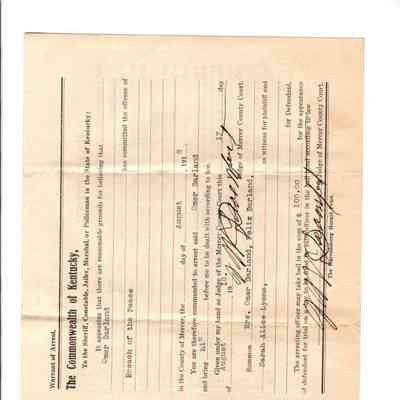 Warrant of Arrest.
The Commonwealth of Kentucky,
To the Sheriff, Constable, Jailer, Marshal, or Policeman in the State of Kentucky:
It appearing that there are reasonable grounds for believing that
Omer Darland
has committed the offense of
Breach of the Peace
in the County of Mercer, the day of August 191
You are therefore commanded to arrest said Omar Darland
and bring him before me to be dealt with according to law.
Given under my hand as Judge of the Mercer County Court this 12 day
of August 19
Judge of Mercer County Court.
Summon Mrs. Omar Darland, Felix Darland,
Sarah Alice Lyons, as witness for plaintiff and
for Defendant.
The arresting officer may take bail in the sum of $ 100.00 for the appearance
of defendant for trial on
Judge of Mercer County Court.
The Harrodsburg Herald Print.